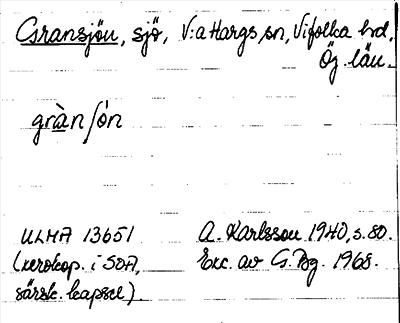 Gransjön, sjö, V:a Hargs sn, Vifolka hd,
Ög. län.
gràn/ón
ULMA 13651 A. Karlsson 1940, s. 80.
(xerokop. i SOA, Exc. av G. Bg. 1968.
särsk. kapsel).